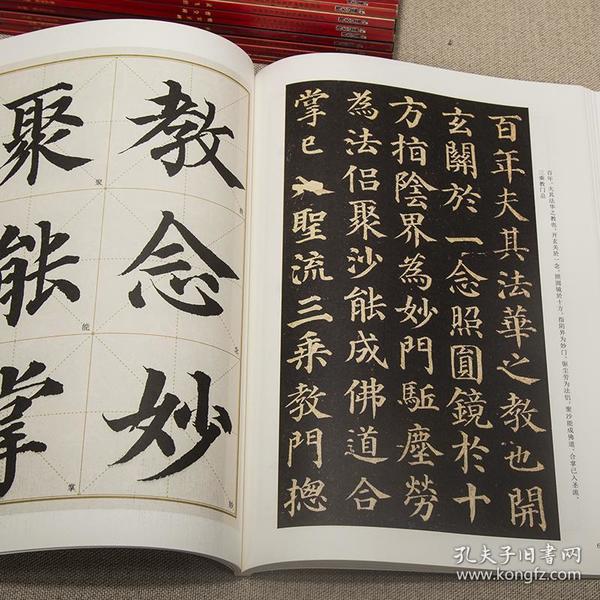 百年。夫其法华之教也,开玄关於一念,照圆镜於十方。指阴界为妙门,驱尘劳为法侣,聚沙能成佛道,合掌已入圣流。
三乘教门总
百年夫其法華之教也開
玄關於一念照圓鏡於十
方指陰界為妙門駈塵勞
為法侶聚沙能成佛道合
掌已入聖流三乘教門揔
教念妙
教
念
妙
聚能掌
聚
能
掌
孔夫子旧书网
www.kongfz.com